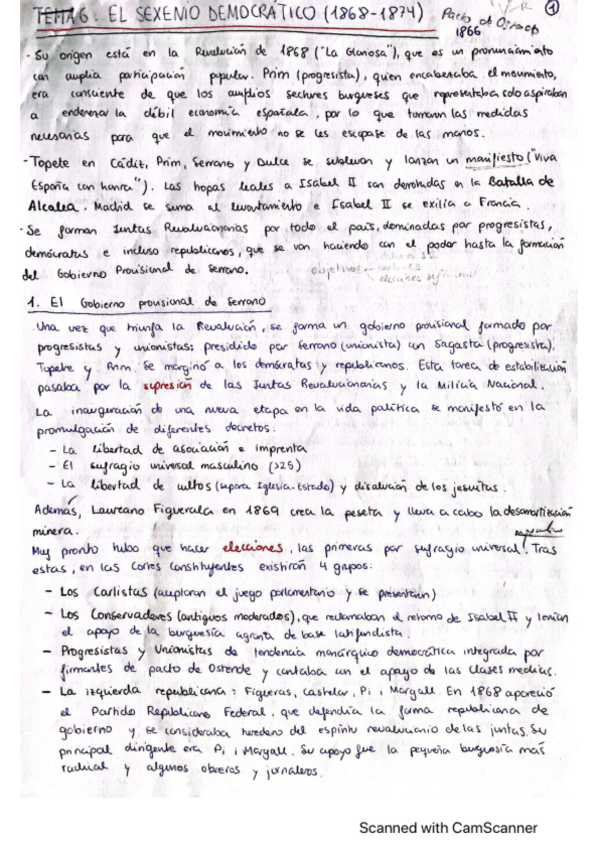 TEMA 6: EL SEXENIO DEMOCRÁTICO (1868-1874)
Pacto de Ostende
1866
1
- Su origen está en la Revolución de 1868 ("La Gloriosa"), que es un pronunciamiento
con amplia participación popular. Prim (progresista), quien encabezaba el movimiento,
era consciente de que los amplios sectores burgueses que representaba solo aspiraban
a enderezar la débil economía española, por lo que tomaron las medidas
necesarias para que el movimiento no se les escapase de las manos.
- Topete en Cádiz, Prim, Serrano y Dulce se sublevan y lanzan un manifiesto ("Viva
España con honra"). Las tropas leales a Isabel II son derrotadas en la Batalla de
Alcolea. Madrid se suma al levantamiento e Isabel II se exilia a Francia.
- Se forman Juntas Revolucionarias por todo el país, dominadas por progresistas,
demócratas e incluso republicanos, que se van haciendo con el poder hasta la formación
del Gobierno Provisional de Serrano.
objetivos
1. El Gobierno provisional de Serrano
Una vez que triunfa la Revolución, se forma un gobierno provisional formado por
progresistas y unionistas: presidido por Serrano (unionista) con Sagasta (progresista),
Topete y Prim. Se marginó a los demócratas y republicanos. Esta tarea de estabilización
pasaba por la supresión de las Juntas Revolucionarias y la Milicia Nacional.
La inauguración de una nueva etapa en la vida política se manifestó en la
promulgación de diferentes decretos:
- La libertad de asociación e imprenta
- El sufragio universal masculino (>25)
- La libertad de cultos (separa Iglesia-Estado) y disolución de los jesuitas.
Además, Laureano Figuerola en 1869 crea la peseta y lleva a cabo la desamortización
minera.
Muy pronto hubo que hacer elecciones, las primeras por sufragio universal. Tras
estas, en las Cortes Constituyentes existirán 4 grupos:
- Los Carlistas (aceptaron el juego parlamentario y se presentaron)
- Los Conservadores (antiguos moderados), que reclamaban el retorno de Isabel II y tenían
el apoyo de la burguesía agraria de base latifundista.
- Progresistas y Unionistas de tendencia monárquico democrática integrada por
firmantes de pacto de Ostende y contaba con el apoyo de las clases medias.
- La izquierda republicana: Figueras, Castelar, Pi i Margall. En 1868 apareció
el Partido Republicano Federal, que defendía la forma republicana de
gobierno y se consideraba heredero del espíritu revolucionario de las juntas. Su
principal dirigente era Pi i Margall. Su apoyo fue la pequeña burguesía más
radical y algunos obreros y jornaleros.
Scanned with CamScanner